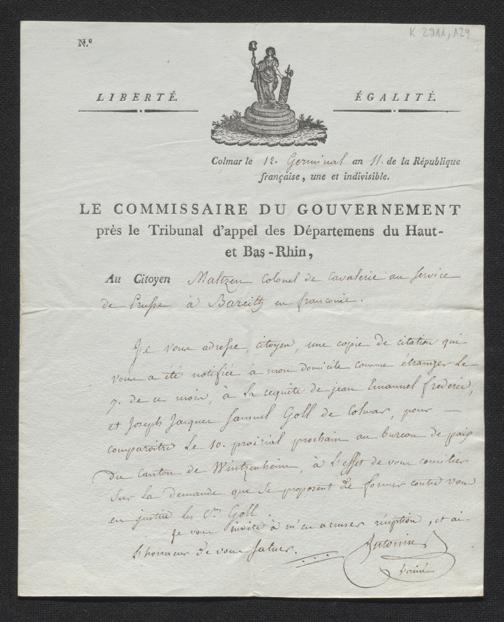 K 2911,129
N.°
LIBERTÉ.
ÉGALITÉ.
Colmar le 12. Germinal an 11. de la République
française, une et indivisible.
LE COMMISSAIRE DU GOUVERNEMENT
près le Tribunal d'appel des Départemens du Haut-
et Bas-Rhin,
Au Citoyen Maltzen Colonel de Cavalerie au service
de Prusse à en franconie.
Je vous adresse, citoyen, une copie de citation qui
vous a été notifiée à mon domicile comme étranger le
7. de ce mois, à la requête de jean Emanuel frederic,
et Joseph Jacques Samuel Goll de Colmar, pour
comparoître le 10. prairial prochain au bureau de paix
Du Canton de Wintzenheim, à l'effet de vous concilier
sur la demande que se proposent de former contre vous
en justice les C.ens Goll.
je vous invite à m'en accuser réception, et ai
l'honneur de vous saluer.
Antonin